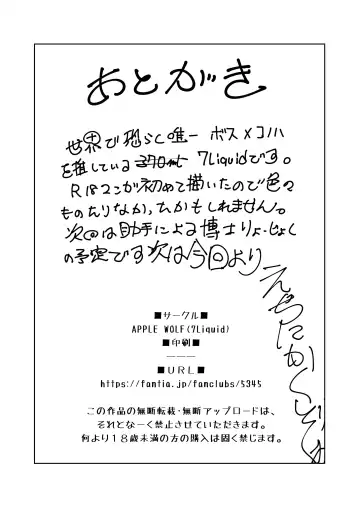 あとがき
世界で恐らく唯一 ボス×コノハ
を推している 370ml 7Liquidです。
R18マンガ初めて描いたので色々
ものたりなかったかもしれません。
次回は助手による博士りょーじょく
の予定です次は今回より
えっちにかくぞ
■サークル■
APPLE WOLF(7Liquid)
■印刷■
———
■URL■
https://fantia.jp/fanclubs/5345
この作品の無断転載・無断アップロードは、
それとな〜く禁止させていただきます。
何より18歳未満の方の購入は固く禁じます。